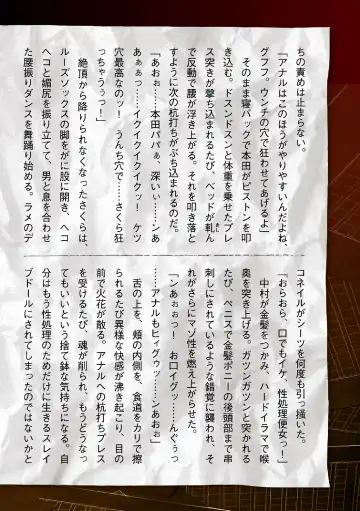 ちの責めは止まらない。
「アナルはこのほうがやりやすいんだよね、
グフフ。ウンチの穴で狂わせてあげるよ」
そのまま寝バックで本田がピストンを叩
き込む。ドスンドスンと体重を乗せたプレ
ス突きが撃ち込まれるたび、ベッドが軋ん
で反動で腰が浮き上がる。それを叩き落と
すように次の杭打ちがぶち込まれるのだ。
「あおぉ……本田パパぁ、深いぃ……ンあ
あぁぁっ……イクイクイクッ！　ケツ
穴最高なのッ！　うんち穴で……さくら狂
っちゃうぅっ！」
絶頂から降りられなくなったさくらは、
ルーズソックスの脚をがに股に開き、ヘコ
ヘコと媚尻を振り立て、男と息を合わせ
た腰振りダンスを舞踊り始める。ラメのデ
コネイルがシーツを何度も引っ掻いた。
「おらおら、口でもイケ、性処理便女っ！」
中村が金髪をつかみ、ハードイラマで喉
奥を突き上げる。ガツンガツンと突かれる
たび、ペニスで金髪ポニーの後頭部まで串
刺しにされているような錯覚に襲われ、そ
れがさらにマゾ性を燃え上がらせた。
「ンあぉぉっ！　お口イグッ……んぐぅっ
……アナルもヒィグゥッ……ンあおぉ」
舌の上を、頬の内側を、食道をカリで擦
られるたび異様な快感が沸き起こり、目の
前で火花が散る。アナルへの杭打ちプレス
を受けるたび、魂が削られ、もうどうなっ
てもいいという捨て鉢な気持ちになる。自
分はもう性処理のためだけに生きるスレイ
ブドールにされてしまったのではないかと